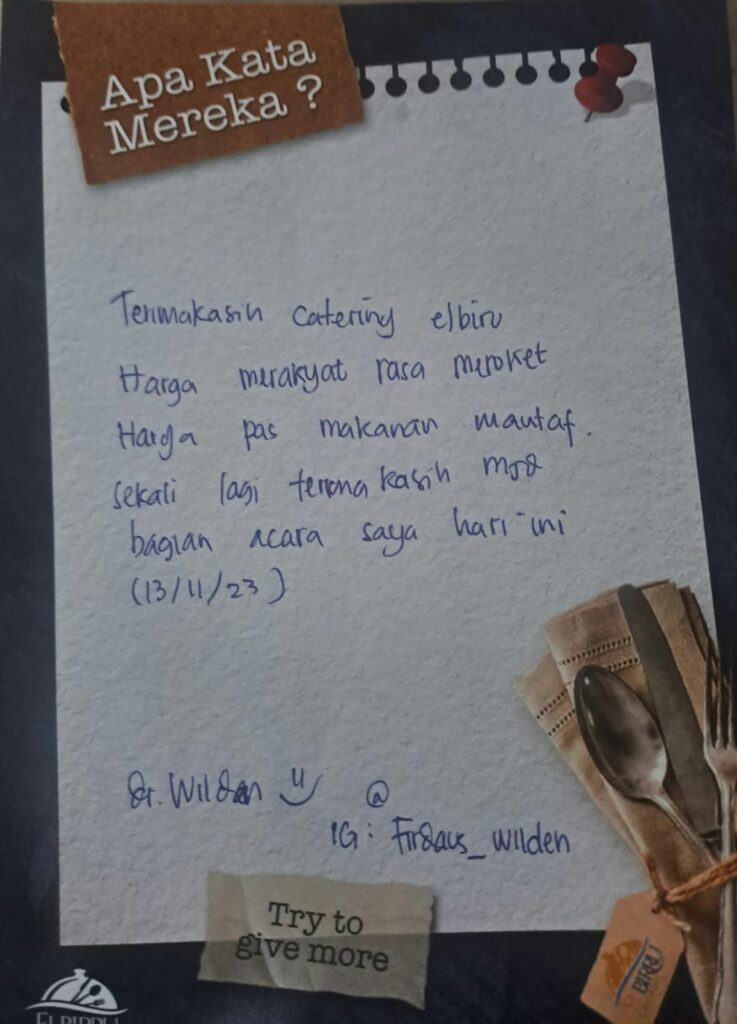 Apa Kata
Mereka ?
Terimakasih catering elbiru
Harga merakyat rasa meroket
Harga pas makanan mautaf.
sekali lagi terima kasih
bagian acara saya hari-ini
(13/11/23)
dr. Wilden @
IG : Firdaus_wilden
Try to
give more
BIRRU
ELBIRRU